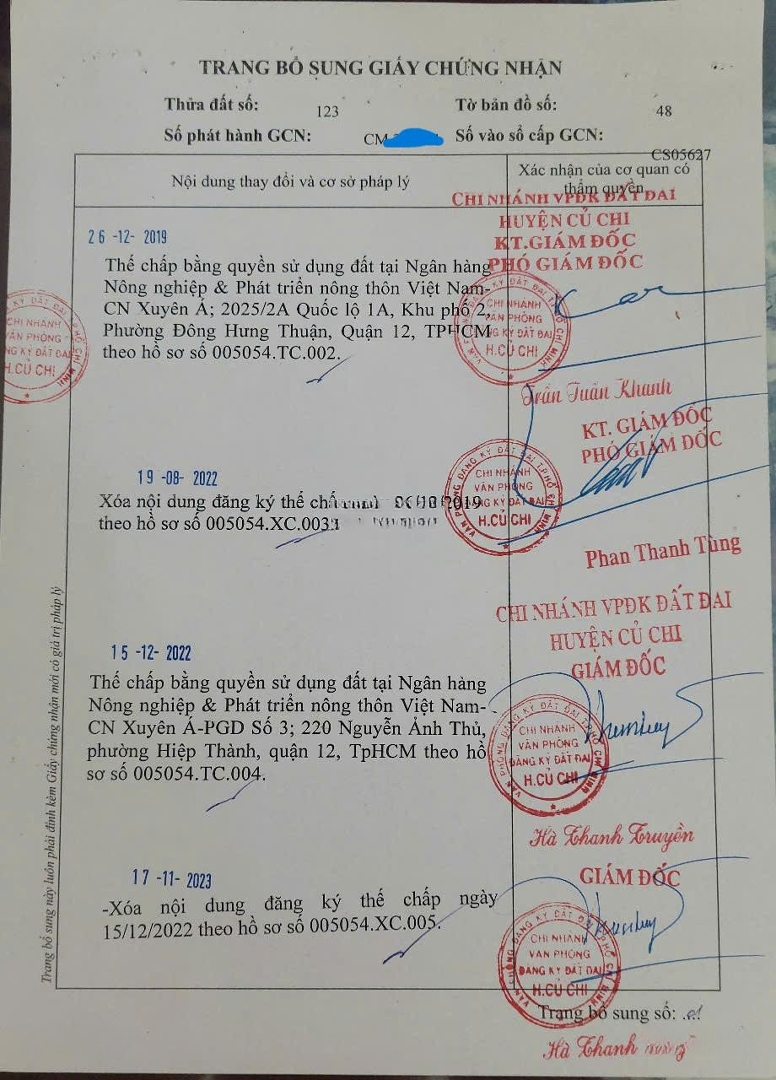 TRANG BỔ SUNG GIẤY CHỨNG NHẬN
Thửa đất số: 123 Tờ bản đồ số: 48
Số phát hành GCN: CM Số vào sổ cấp GCN: CS05627
Nội dung thay đổi và cơ sở pháp lý
Xác nhận của cơ quan có
thẩm quyền
26 -12- 2019
Thế chấp bằng quyền sử dụng đất tại Ngân hàng
Nông nghiệp & Phát triển nông thôn Việt Nam-
CN Xuyên Á; 2025/2A Quốc lộ 1A, Khu phố 2,
Phường Đông Hưng Thuận, Quận 12, TPHCM
theo hồ sơ số 005054.TC.002.
CHI NHÁNH VPĐK ĐẤT ĐAI
HUYỆN CỦ CHI
KT.GIÁM ĐỐC
PHÓ GIÁM ĐỐC
CHI NHÁNH
VĂN PHÒNG
ĐĂNG KÝ ĐẤT ĐAI
H.CỦ CHI
Trần Tuấn Khanh
CHI NHÁNH
VĂN PHÒNG
ĐĂNG KÝ ĐẤT ĐAI
H.CỦ CHI
19 -08- 2022
Xóa nội dung đăng ký thế
theo hồ sơ số
KT. GIÁM ĐỐC
PHÓ GIÁM ĐỐC
VĂN PHÒNG ĐĂNG KÝ ĐẤT ĐAI TP.HỒ CHÍ MINH
CHI NHÁNH
VĂN PHÒNG
ĐĂNG KÝ ĐẤT ĐAI
H.CỦ CHI
Phan Thanh Tùng
15 -12- 2022
Thế chấp bằng quyền sử dụng đất tại Ngân hàng
Nông nghiệp & Phát triển nông thôn Việt Nam-
CN Xuyên Á-PGD Số 3; 220 Nguyễn Ảnh Thủ,
phường Hiệp Thành, quận 12, TpHCM theo hồ
sơ số 005054.TC.004.
CHI NHÁNH VPĐK ĐẤT ĐAI
HUYỆN CỦ CHI
GIÁM ĐỐC
VĂN PHÒNG ĐĂNG KÝ ĐẤT ĐAI TP.HỒ CHÍ MINH
CHI NHÁNH
VĂN PHÒNG
ĐĂNG KÝ ĐẤT ĐAI
H.CỦ CHI
Hà Thanh Truyền
17 -11- 2023
-Xóa nội dung đăng ký thế chấp ngày
15/12/2022 theo hồ sơ số 005054.XC.005.
GIÁM ĐỐC
VĂN PHÒNG ĐĂNG KÝ ĐẤT ĐAI TP.HỒ CHÍ MINH
CHI NHÁNH
VĂN PHÒNG
ĐĂNG KÝ ĐẤT ĐAI
H.CỦ CHI
Trang bổ sung số:
Hà Thanh
Trang bổ sung này luôn phải đính kèm Giấy chứng nhận mới có giá trị pháp lý